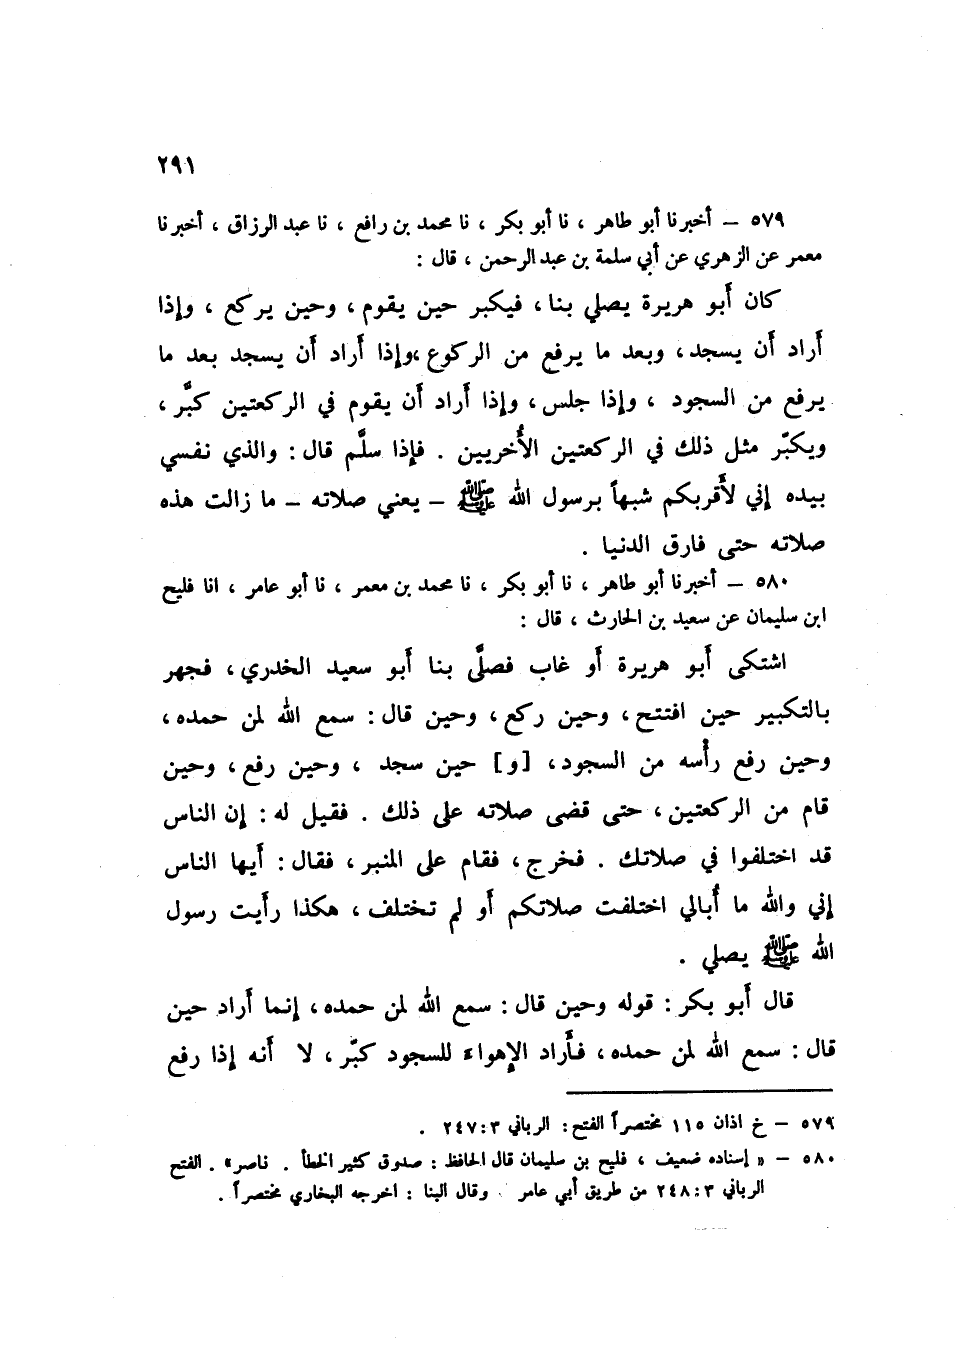 ٢٩١
٥٧٩ – أخبرنا أبو طاهر ، نا أبو بكر ، نا محمد بن رافع ، نا عبد الرزاق ، أخبرنا
معمر عن الزهري عن أبي سلمة بن عبد الرحمن ، قال :
كان أَبو هريرة يصلي بنا، فيكبر حين يقوم، وحين يركع ، وإذا
أَراد أَن يسجد، وبعد ما يرفع من الركوع،وإذا أَراد أَن يسجد بعد ما
يرفع من السجود ، وإذا جلس، وإذا أَراد أَن يقوم في الركعتين كبَّر،
ويكبّر مثل ذلك في الركعتين الأُخريين . فإذا سلَّم قال: والذي نفسي
بيده إني لأَقربكم شبهاً برسول الله ﷺ – يعني صلاته – ما زالت هذه
صلاته حتى فارق الدنيا .
٥٨٠ – أخبرنا أبو طاهر ، نا أبو بكر ، نا محمد بن معمر ، نا أبو عامر ، انا فليح
ابن سليمان عن سعيد بن الحارث ، قال :
اشتكى أَبو هريرة أَو غاب فصلَّى بنا أَبو سعيد الخدري، فجهر
بالتكبير حين افتتح، وحين ركع، وحين قال: سمع الله لمن حمده،
وحين رفع رأْسه من السجود، [و] حين سجد ، وحين رفع، وحين
قام من الركعتين، حتى قضى صلاته على ذلك . فقيل له: إن الناس
قد اختلفوا في صلاتك . فخرج، فقام على المنبر، فقال: أَيها الناس
إني والله ما أُبالي اختلفت صلاتكم أَو لم تختلف، هكذا رأَيت رسول
الله ﷺ يصلي .
قال أَبو بكر: قوله وحين قال: سمع الله لمن حمده، إنما أَراد حين
قال: سمع الله لمن حمده، فأَراد الإهواء للسجود كبّر، لا أَنه إذا رفع
٥٧٩ – خ اذان ١١٥ مختصراً الفتح: الرباني ٢٤٧:٣ .
٥٨٠ – « إسناده ضعيف ، فليح بن سليمان قال الحافظ : صدوق كثير الخطأ . ناصر» . الفتح
الرباني ٢٤٨:٣ من طريق أبي عامر . وقال البنا : اخرجه البخاري مختصراً .